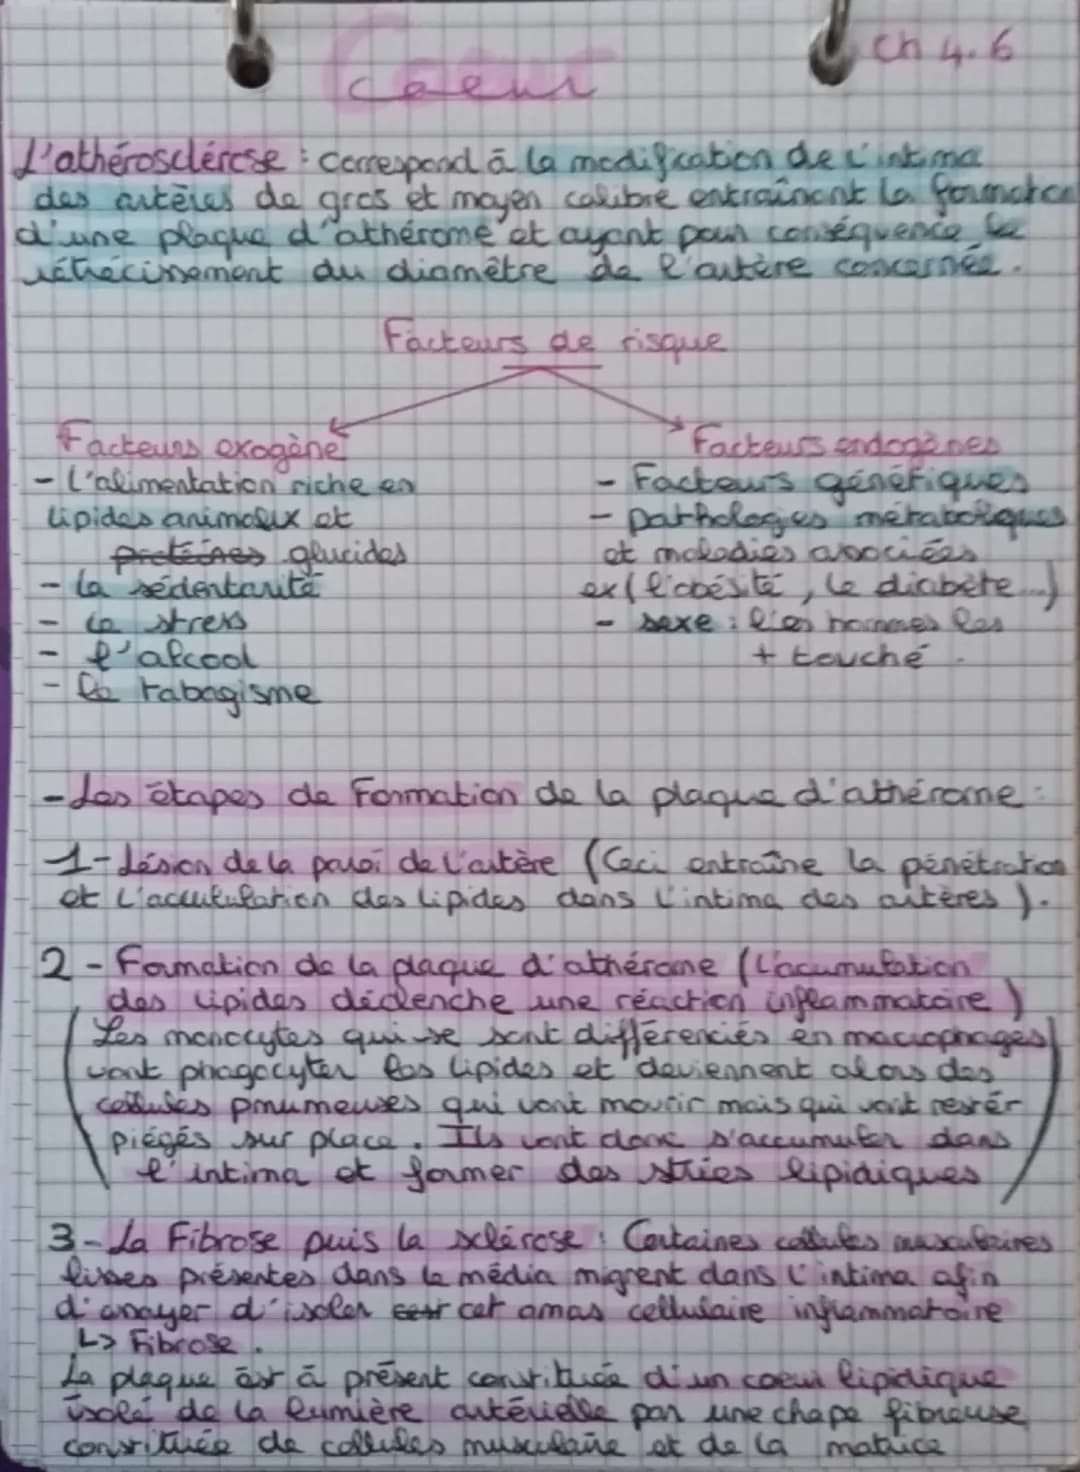 Coeur
Ch 4.6
L'athérosclérose : correspond à la modification de l'intima
des artères de gros et moyen calibre entraînant la formation
d'une plaque d'athérome et ayant pour conséquence le
rétrécissement du diamètre de l'artère concernée.
Facteurs de risque
Facteurs exogène
- L'alimentation riche en
lipides animaux et
protéines glucides
- la sédentarité
- le stress
- l'alcool
- le tabagisme
Facteurs endogènes
- Facteurs génétiques
- pathologies métaboliques
et maladies associées
ex (l'obésité, le diabète...)
- sexe : les hommes les
+ touché.
- Les étapes de Formation de la plaque d'athérome :
1- Lésion de la paroi de l'artère (Ceci entraîne la pénétration
et l'accutulation des lipides dans l'intima des artères).
2 - Formation de la plaque d'athérome (L'acumulation
des lipides déclenche une réaction inflammatoire)
(Les monocytes qui se sont différenciés en macrophages
vont phagocyter les lipides et deviennent alors des
cellules pmumeuses qui vont mourir mais qui vont rester
piégés sur place. Ils vont donc s'accumuler dans
l'intima et former des stries lipidiques)
3- La Fibrose puis la sclérose : Certaines cellules musculaires
lisses présentes dans la média migrent dans l'intima afin
d'essayer d'isoler cet amas cellulaire inflammatoire
↳ Fibrose.
La plaque est à présent constituée d'un coeur lipidique
isolé de la lumière artérielle par une chape fibreuse
constituée de cellules musculaire et de la matrice